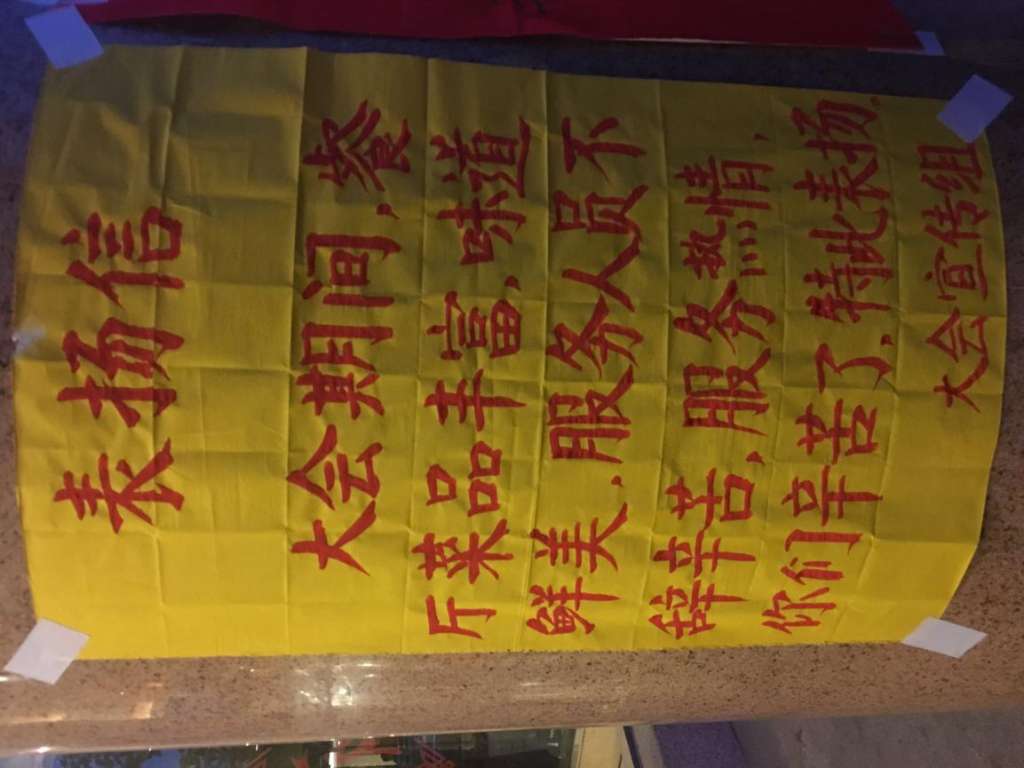 表扬信
大会期间,餐
厅菜品丰富,味道
鲜美.服务人员不
辞辛苦,服务热情,
你们辛苦了,特此表扬.
大会宣传组